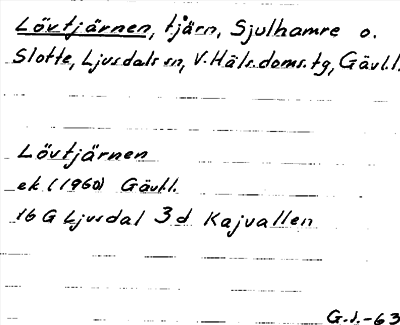 Lövtjärnen, tjärn, Sjulhamre o.
Slotte, Ljusdals sn, V. Häls. doms. tg, Gävl.l.
Lövtjärnen
ek (1960) Gävl.l.
16 G Ljusdal 3 d Kajvallen
G.I.-63